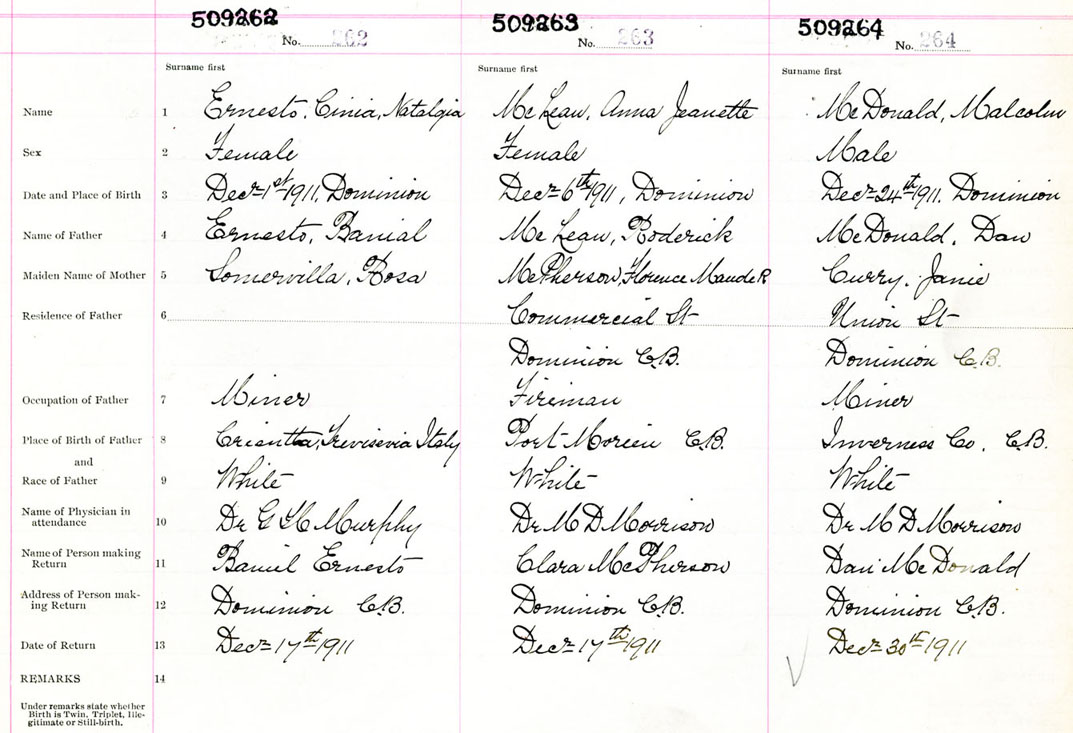 509262 509263 509264
No. 262 No. 263 No. 264
Surname first Surname first Surname first
Name 1 Ernesto, Cinia, Natalgia McLean, Anna Jeanette McDonald, Malcolm
Sex 2 Female Female Male
Date and Place of Birth 3 Decr 1st 1911, Dominion Decr 6th 1911, Dominion Decr 24th 1911. Dominion
Name of Father 4 Ernesto, Banial McLean, Roderick McDonald, Dan
Maiden Name of Mother 5 Somervilla, Rosa McPherson, Florence Maude R Curry, Janie
Residence of Father 6 Commercial St Union St
Dominion C.B. Dominion C.B.
Occupation of Father 7 Miner Fireman Miner
Place of Birth of Father 8 Italy Port Morien C.B. Inverness Co, C.B.
and
Race of Father 9 White White White
Name of Physician in
attendance 10 Dr G H Murphy Dr M D Morrison Dr M D Morrison
Name of Person making
Return 11 Banial Ernesto Clara McPherson Dan McDonald
Address of Person mak-
ing Return 12 Dominion C.B. Dominion C.B. Dominion C.B.
Date of Return 13 Decr 17th 1911 Decr 17th 1911 Decr 30th 1911
REMARKS 14
Under remarks state whether
Birth is Twin, Triplet, Ille-
gitimate or Still-birth.